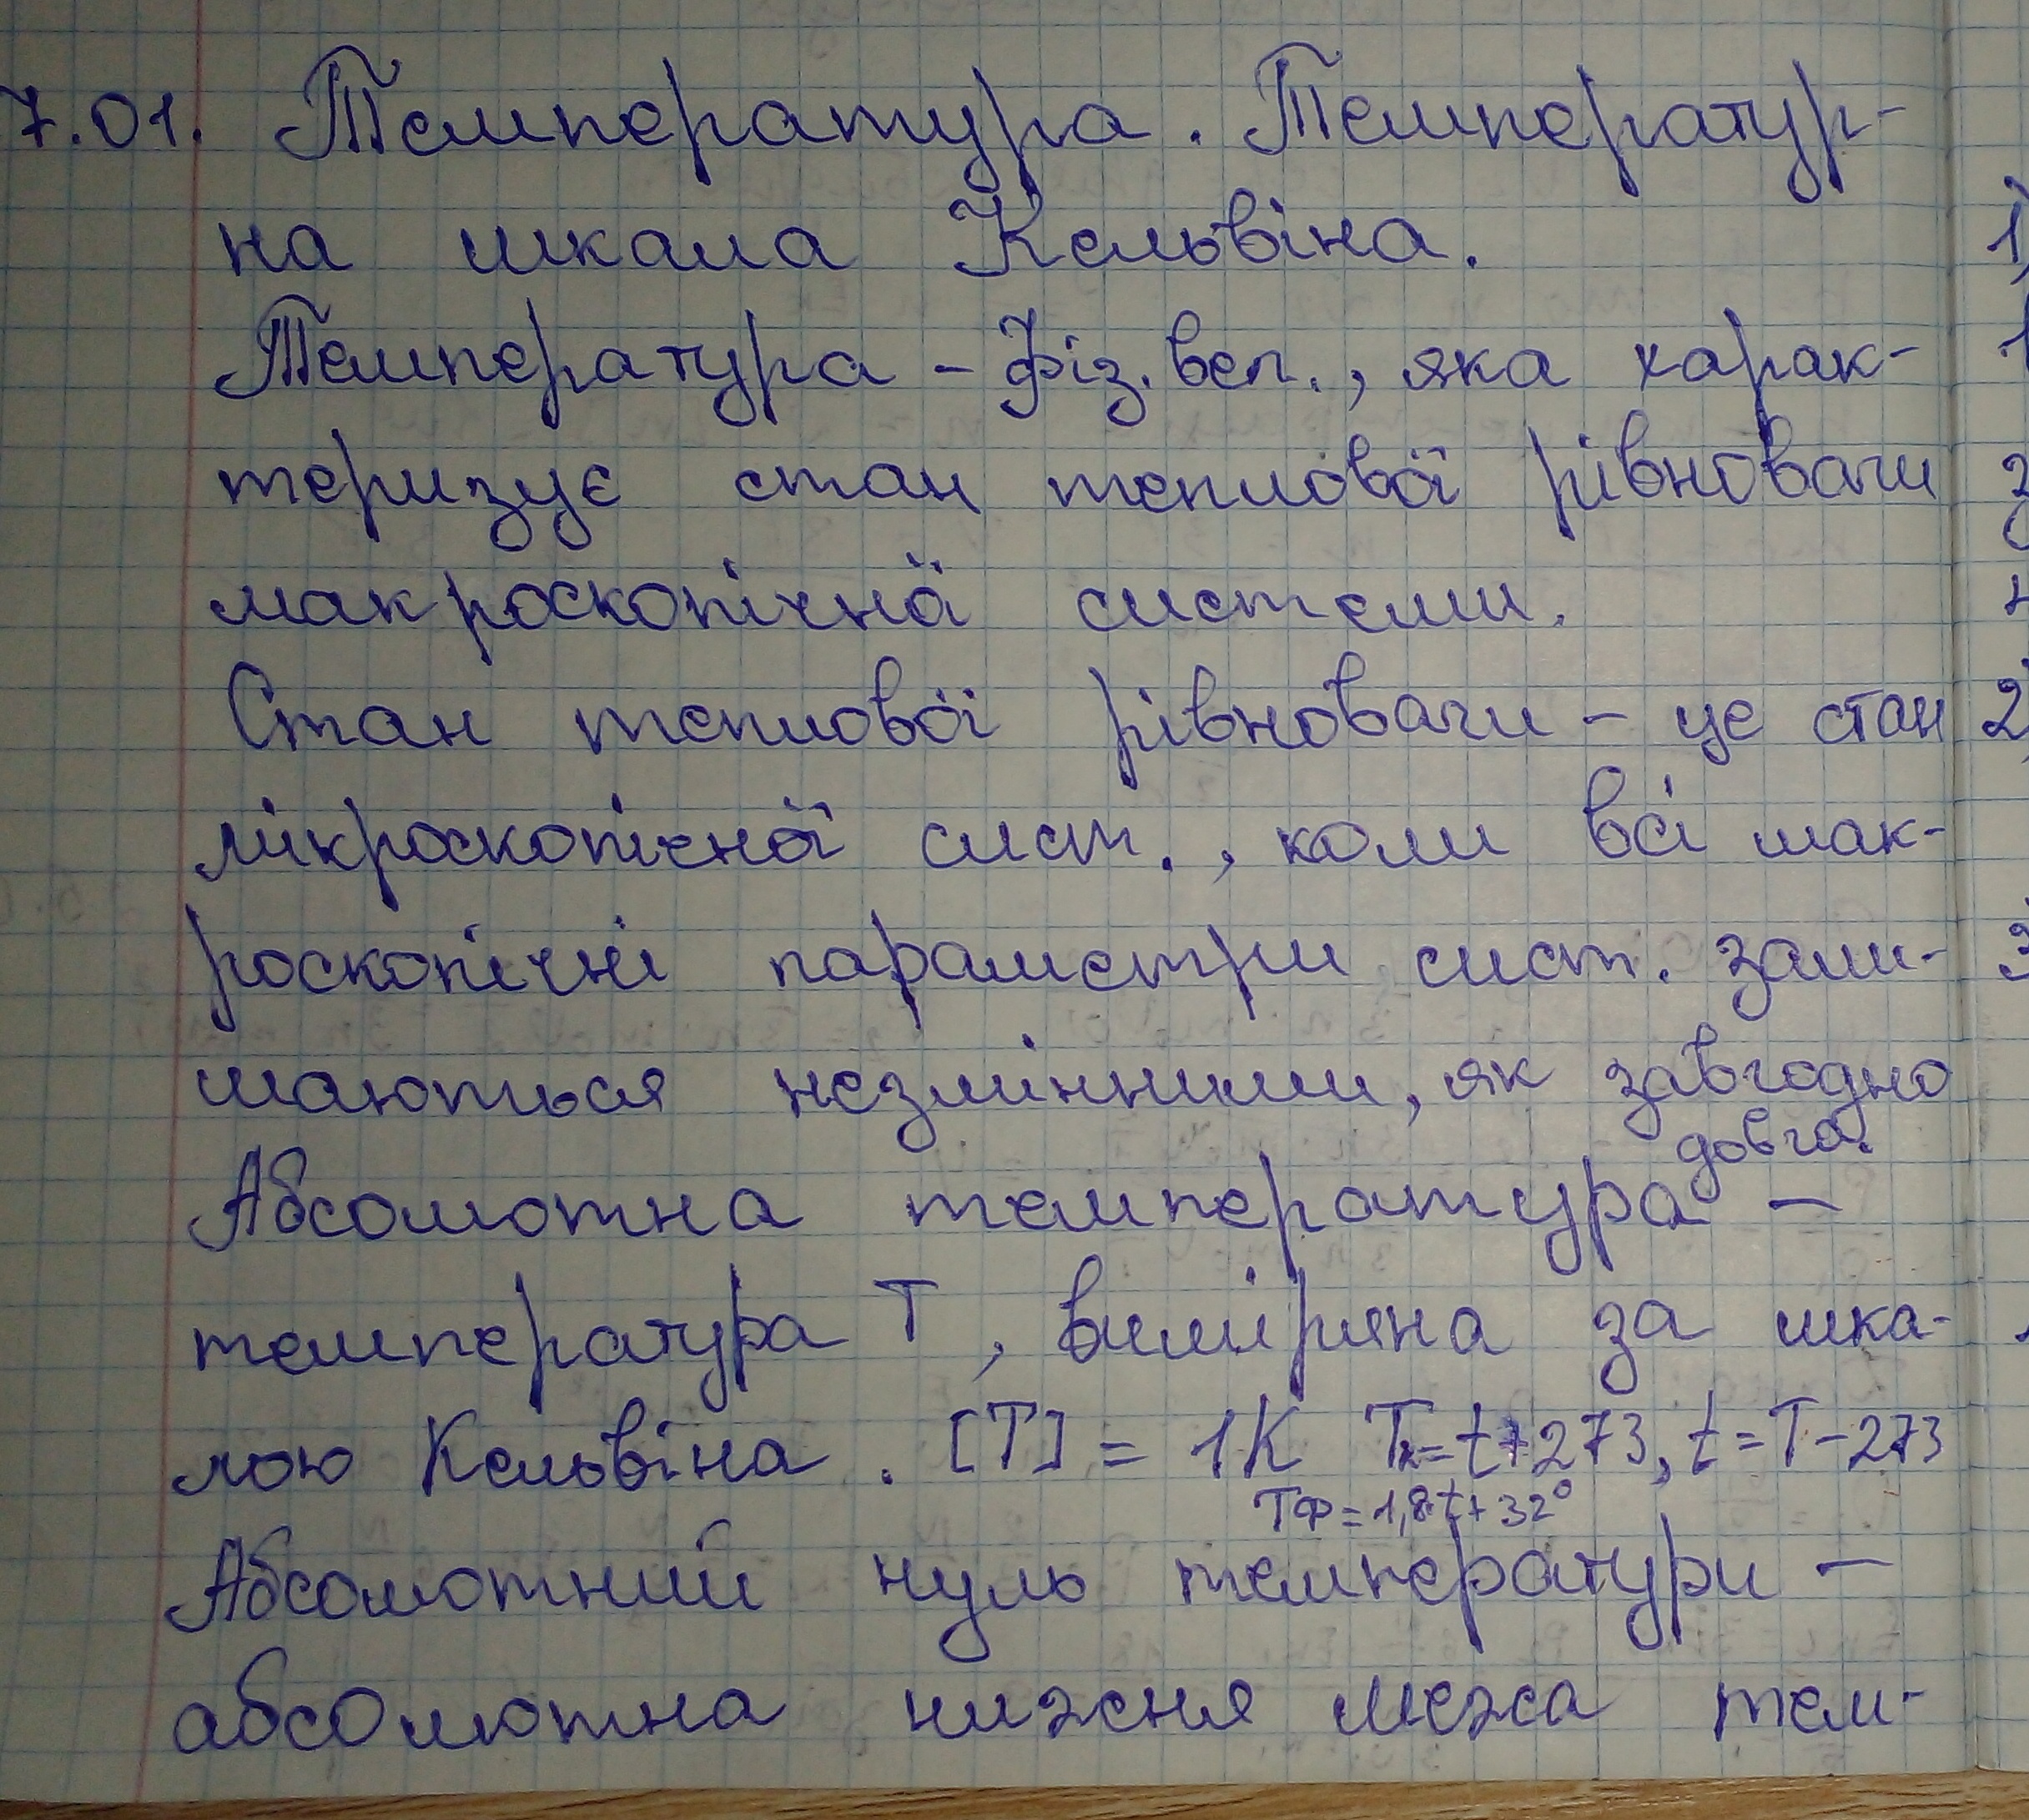 7.01. Температура. Температур-
на шкала Кельвіна.
Температура - фіз. вел., яка харак-
теризує стан теплової рівноваги
макроскопічної системи.
Стан теплової рівноваги - це стан
мікроскопічної сист., коли всі мак-
роскопічні параметри сист. зали-
шаються незмінними, як завгодно
довго.
Абсолютна температура -
температура T, виміряна за шка-
лою Кельвіна. [T] = 1K T = t+273, t = T-273
Tф = 1,8t + 32°
Абсолютний нуль температури -
абсолютна нижня межа тем-